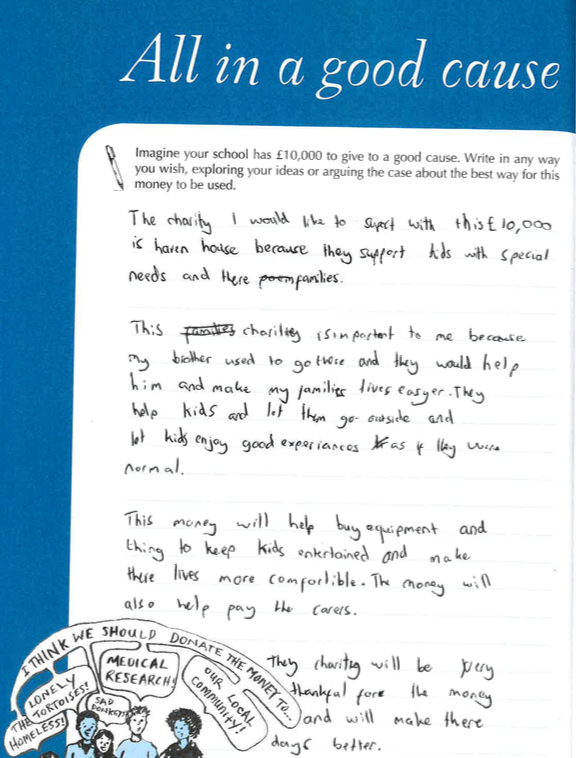 All in a good cause
Imagine your school has £10,000 to give to a good cause. Write in any way
you wish, exploring your ideas or arguing the case about the best way for this
money to be used.
The charity I would like to suport with this £10,000
is haven house because they support kids with special
needs and there poem families.
This families charitiey is important to me because
my brother used to go there and they would help
him and make my families lives easyer. They
help kids and let them go outside and
let kids enjoy good experiances as if they were
normal.
This money will help buy equipment and
thing to keep kids entertained and make
there lives more comfortible. The money will
also help pay the carers.
They charitey will be very
thankful fore the money
and will make there
days better.
I THINK WE SHOULD DONATE THE MONEY TO...
THE HOMELESS!
LONELY TORTOISES!
SAD DONKEYS!
MEDICAL
RESEARCH!
OUR LOCAL
COMMUNITY!